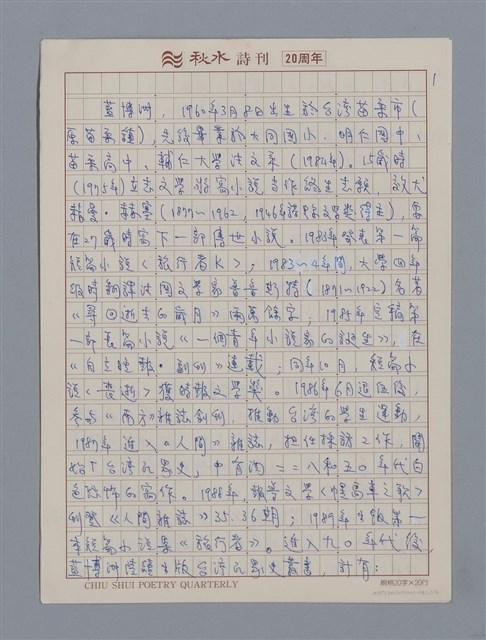 秋水 詩刊 20周年
1
藍博洲,1960年3月8日出生於台灣苗栗市(
原苗栗鎮),先後畢業於大同國小、明仁國中、
苗栗高中、輔仁大學法文系(1984年)。15歲時
(1975年)立志文學,將寫小說當作終生志願,
赫曼・赫塞(1877~1962,1946年諾貝爾文學獎得主),
在27歲時寫下一部傳世小說。1983年發表第一篇
短篇小說〈旅行者K〉;1983~4年間,大學四年
級時翻譯法國文學家普魯斯特(1871~1922)名著
《尋回逝去的歲月》兩萬餘字;1985年完稿第
一部長篇小說《一個青年小說家的誕生》,在
《自立晚報・副刊》連載;同年10月,短篇小
說〈喪逝〉獲時報文學獎。1986年6月退伍後,
參與《南方》雜誌創刊,推動台灣的學生運動,
1987年進入《人間》雜誌,擔任採訪工作,開
始了台灣民眾史,中有關二二八和五〇年代白
色恐怖的寫作。1988年,報導文學〈幌馬車之歌〉
刊登《人間雜誌》35.36期;1989年出版第一
本短篇小說集《旅行者》。進入九〇年代後,
藍博洲陸續出版台灣民眾史叢書,計有:
CHIU SHUI POETRY QUARTERLY
稿紙20字×20行